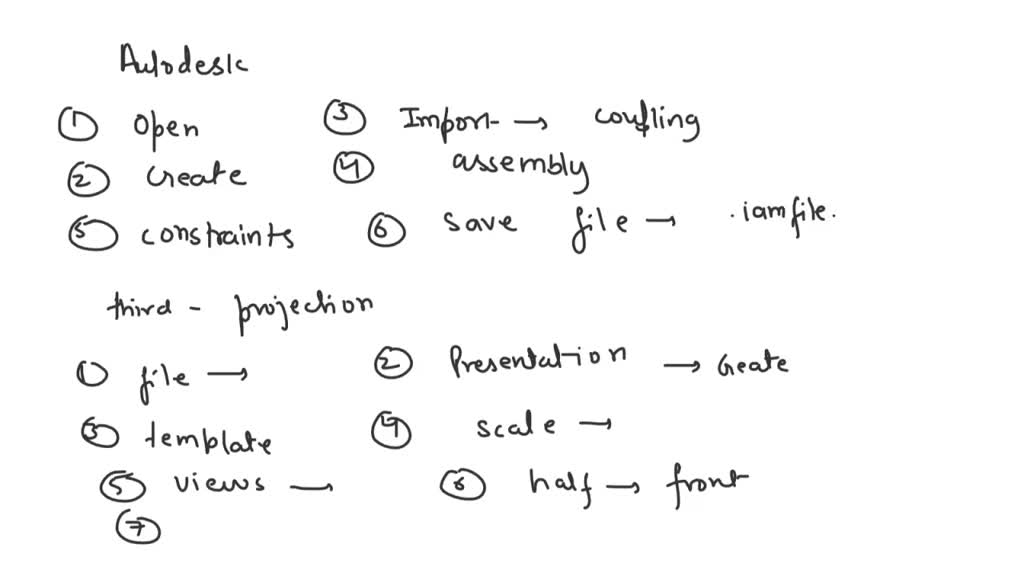 Autodesk
① Open ③ Import → coupling
② Create ④ assembly
⑤ constraints ⑥ save file → .iamfile.
third - projection
① file → ② Presentation → Create
③ template ④ scale →
⑤ views → ⑥ half → front
⑦